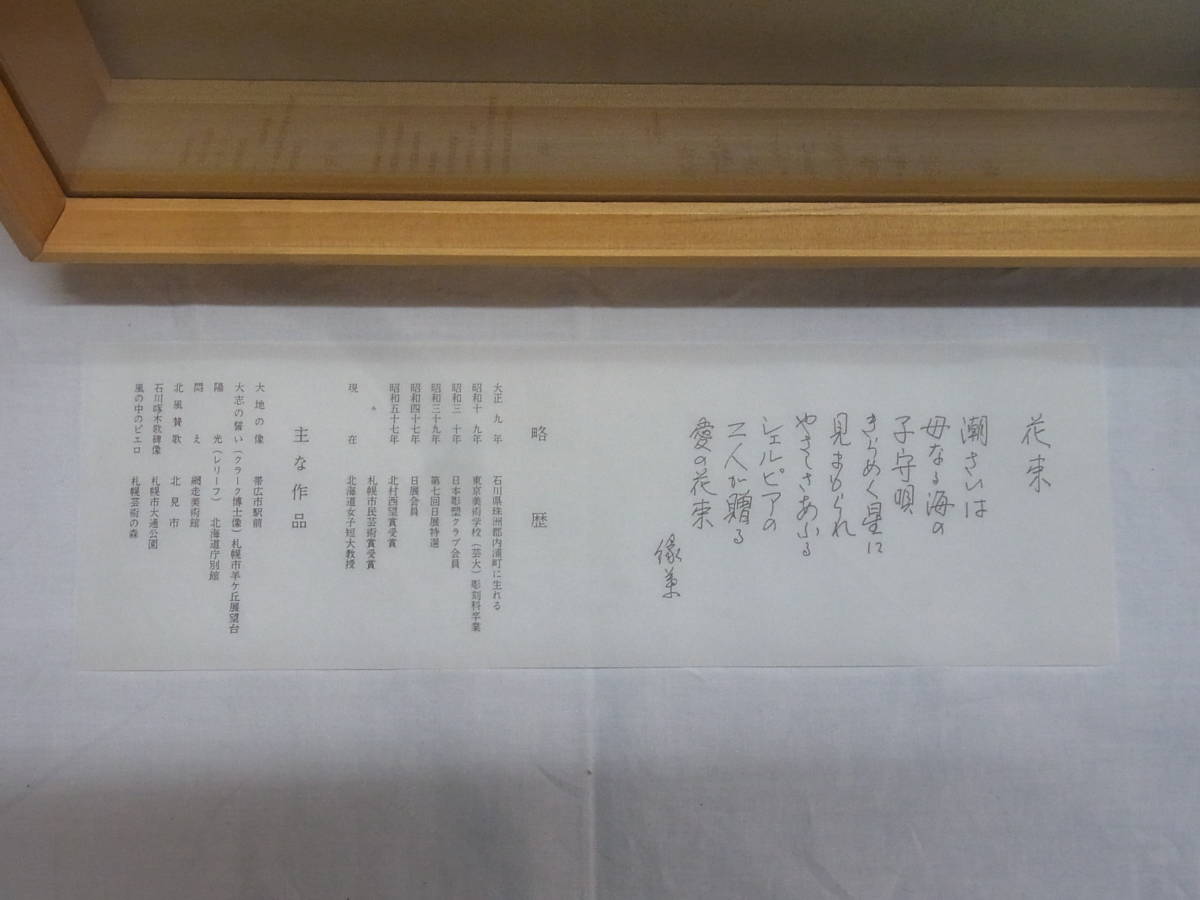 花束
潮さいは
母なる海の
子守唄
きらめく星に
見まもられ
やさしさあふる
シェルピアの
二人が贈る
愛の花束
略歴
大正九年 石川県珠洲郡内浦町に生れる
昭和十九年 東京美術学校(芸大)彫刻科卒業
昭和三十年 日本彫塑クラブ会員
昭和三十九年 第七回日展特選
昭和四十七年 日展会員
昭和五十七年 北村西望賞受賞
〃 札幌市民芸術賞受賞
現在 北海道女子短大教授
主な作品
大地の像 帯広市駅前
大志の誓い(クラーク博士像)札幌市羊ケ丘展望台
陽光(レリーフ) 北海道庁別館
悶え 網走美術館
北風賛歌 北見市
石川啄木歌碑像 札幌市大通公園
風の中のピエロ 札幌芸術の森